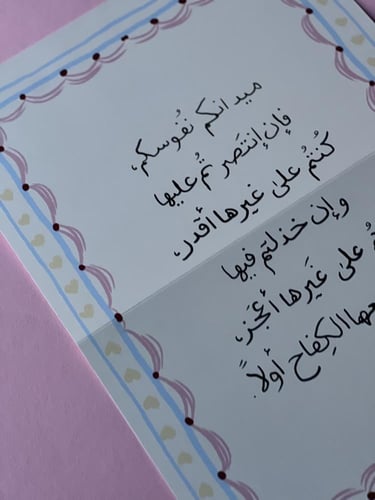 ميدانكم نُفُوسكم،
فإن إنتَصَرتُم عليها
كُنتُم على غيرها أقدر،
وإن خذلتم فيها
على غَيرها أعجَز،
الكِفاح أولاً.